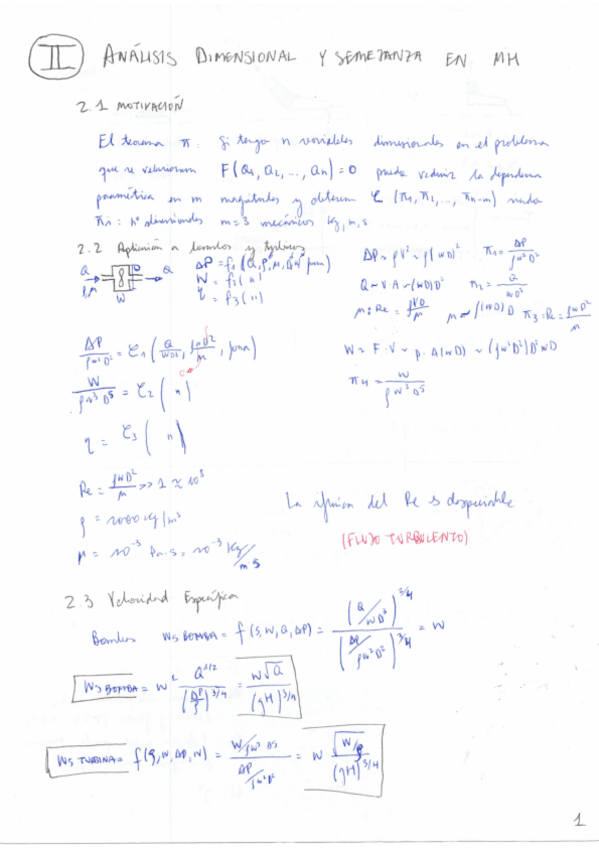 II ANÁLISIS DIMENSIONAL Y SEMEJANZA EN MH
2.1 MOTIVACIÓN
El teorema π: Si tengo n variables dimensionales en el problema
que se relacionan F(a₁, a₂, ..., an) = 0 puedo reducir la dependencia
paramétrica en m magnitudes y obtener φ(π₁, π₂, ..., πn-m) siendo
πi: nº dimensionales m=3 mecánicos kg, m, s
2.2 Aplicación a bombas y turbinas
Q → Q
ρ, μ W D
ΔP = f₁(Q, ρ, μ, D, W, forma)
W = f₂( " )
η = f₃( " )
ΔP ~ ρV² ~ ρ(WD)² π₁ = ΔP/ρW²D²
Q ~ V·A ~ (WD)D² π₂ = Q/WD³
μ: Re = ρVD/μ μ ~ ρ(WD)D π₃ = Re = ρWD²/μ
W = F·V ~ p·A(WD) ~ (ρW²D²)D²WD
π₄ = W/ρW³D⁵
ΔP/ρW²D² = φ₁(Q/WD³, ρWD²/μ, forma)
W/ρW³D⁵ = φ₂( " )
η = φ₃( " )
Re = ρWD²/μ >> 1 ≈ 10³
ρ = 1000 kg/m³
μ = 10⁻³ Pa·s = 10⁻³ kg/m·s
La del Re es despreciable
(FLUJO TURBULENTO)
2.3 Velocidad Específica
Bombas Ws BOMBA = f(ρ, W, Q, ΔP) = (Q/WD³)^1/2 / (ΔP/ρW²D²)^3/4 = W
Ws BOMBA = W Q^1/2/(ΔP/ρ)^3/4 = W√Q/(gH)^3/4
Ws TURBINA = f(ρ, W, ΔP, W) = W/ρW³D⁵ / ΔP/ρW²D² = W √W/ρ/(gH)^5/4
1